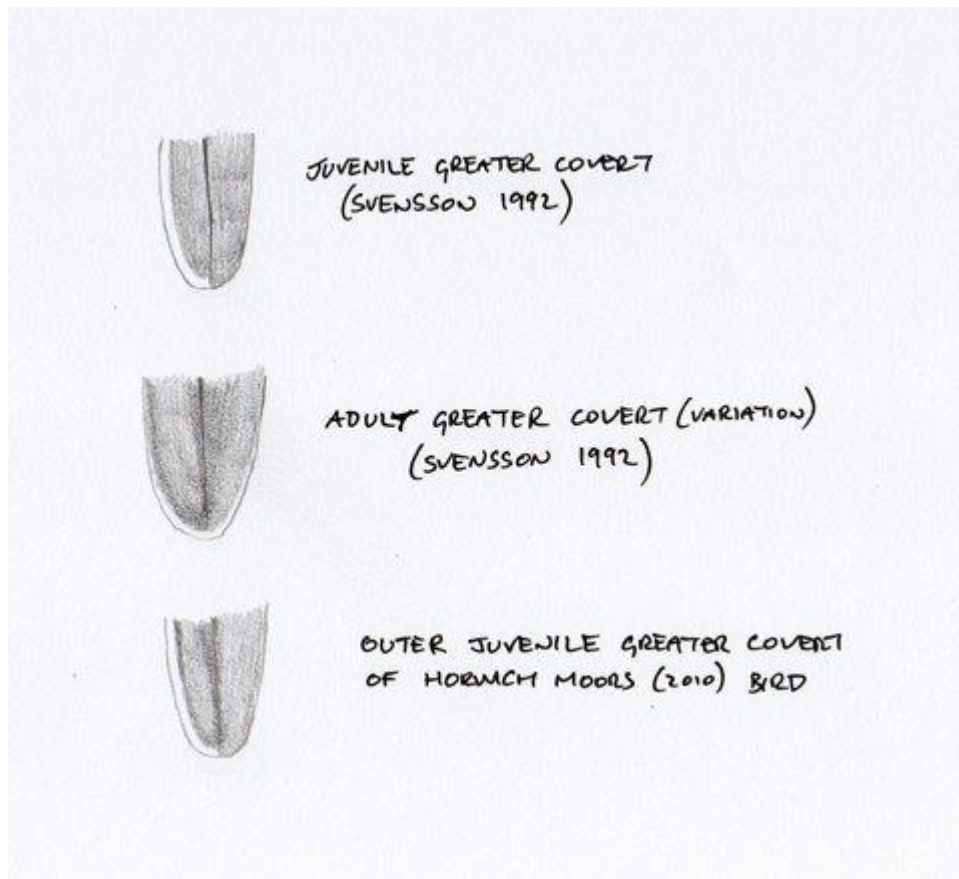 JUVENILE GREATER COVERT
(SVENSSON 1992)
ADULT GREATER COVERT (VARIATION)
(SVENSSON 1992)
OUTER JUVENILE GREATER COVERT
OF HORWICH MOORS (2010) BIRD